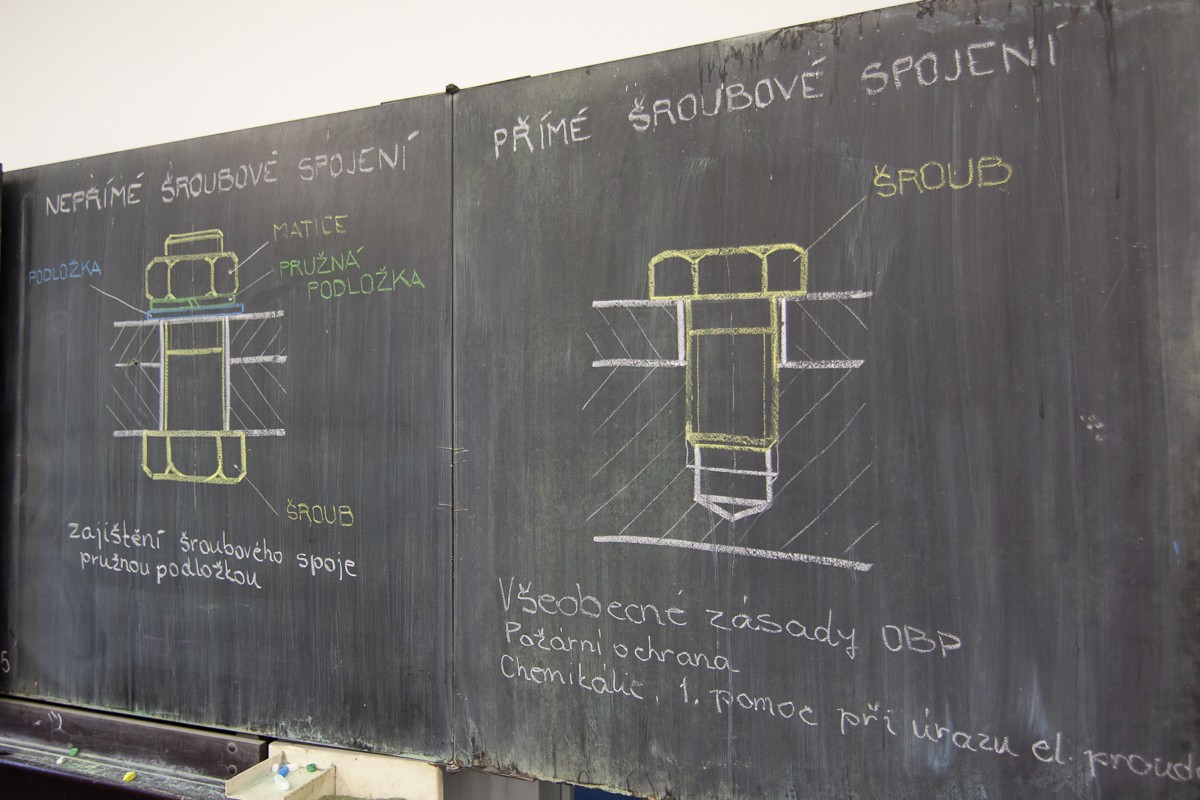 NEPŘÍMÉ ŠROUBOVÉ SPOJENÍ
MATICE
PODLOŽKA
PRUŽNÁ
PODLOŽKA
ŠROUB
zajištění šroubového spoje
pružnou podložkou
PŘÍMÉ ŠROUBOVÉ SPOJENÍ
ŠROUB
Všeobecné zásady OBP
Požární ochrana
Chemikálie, 1. pomoc při úrazu el.
5